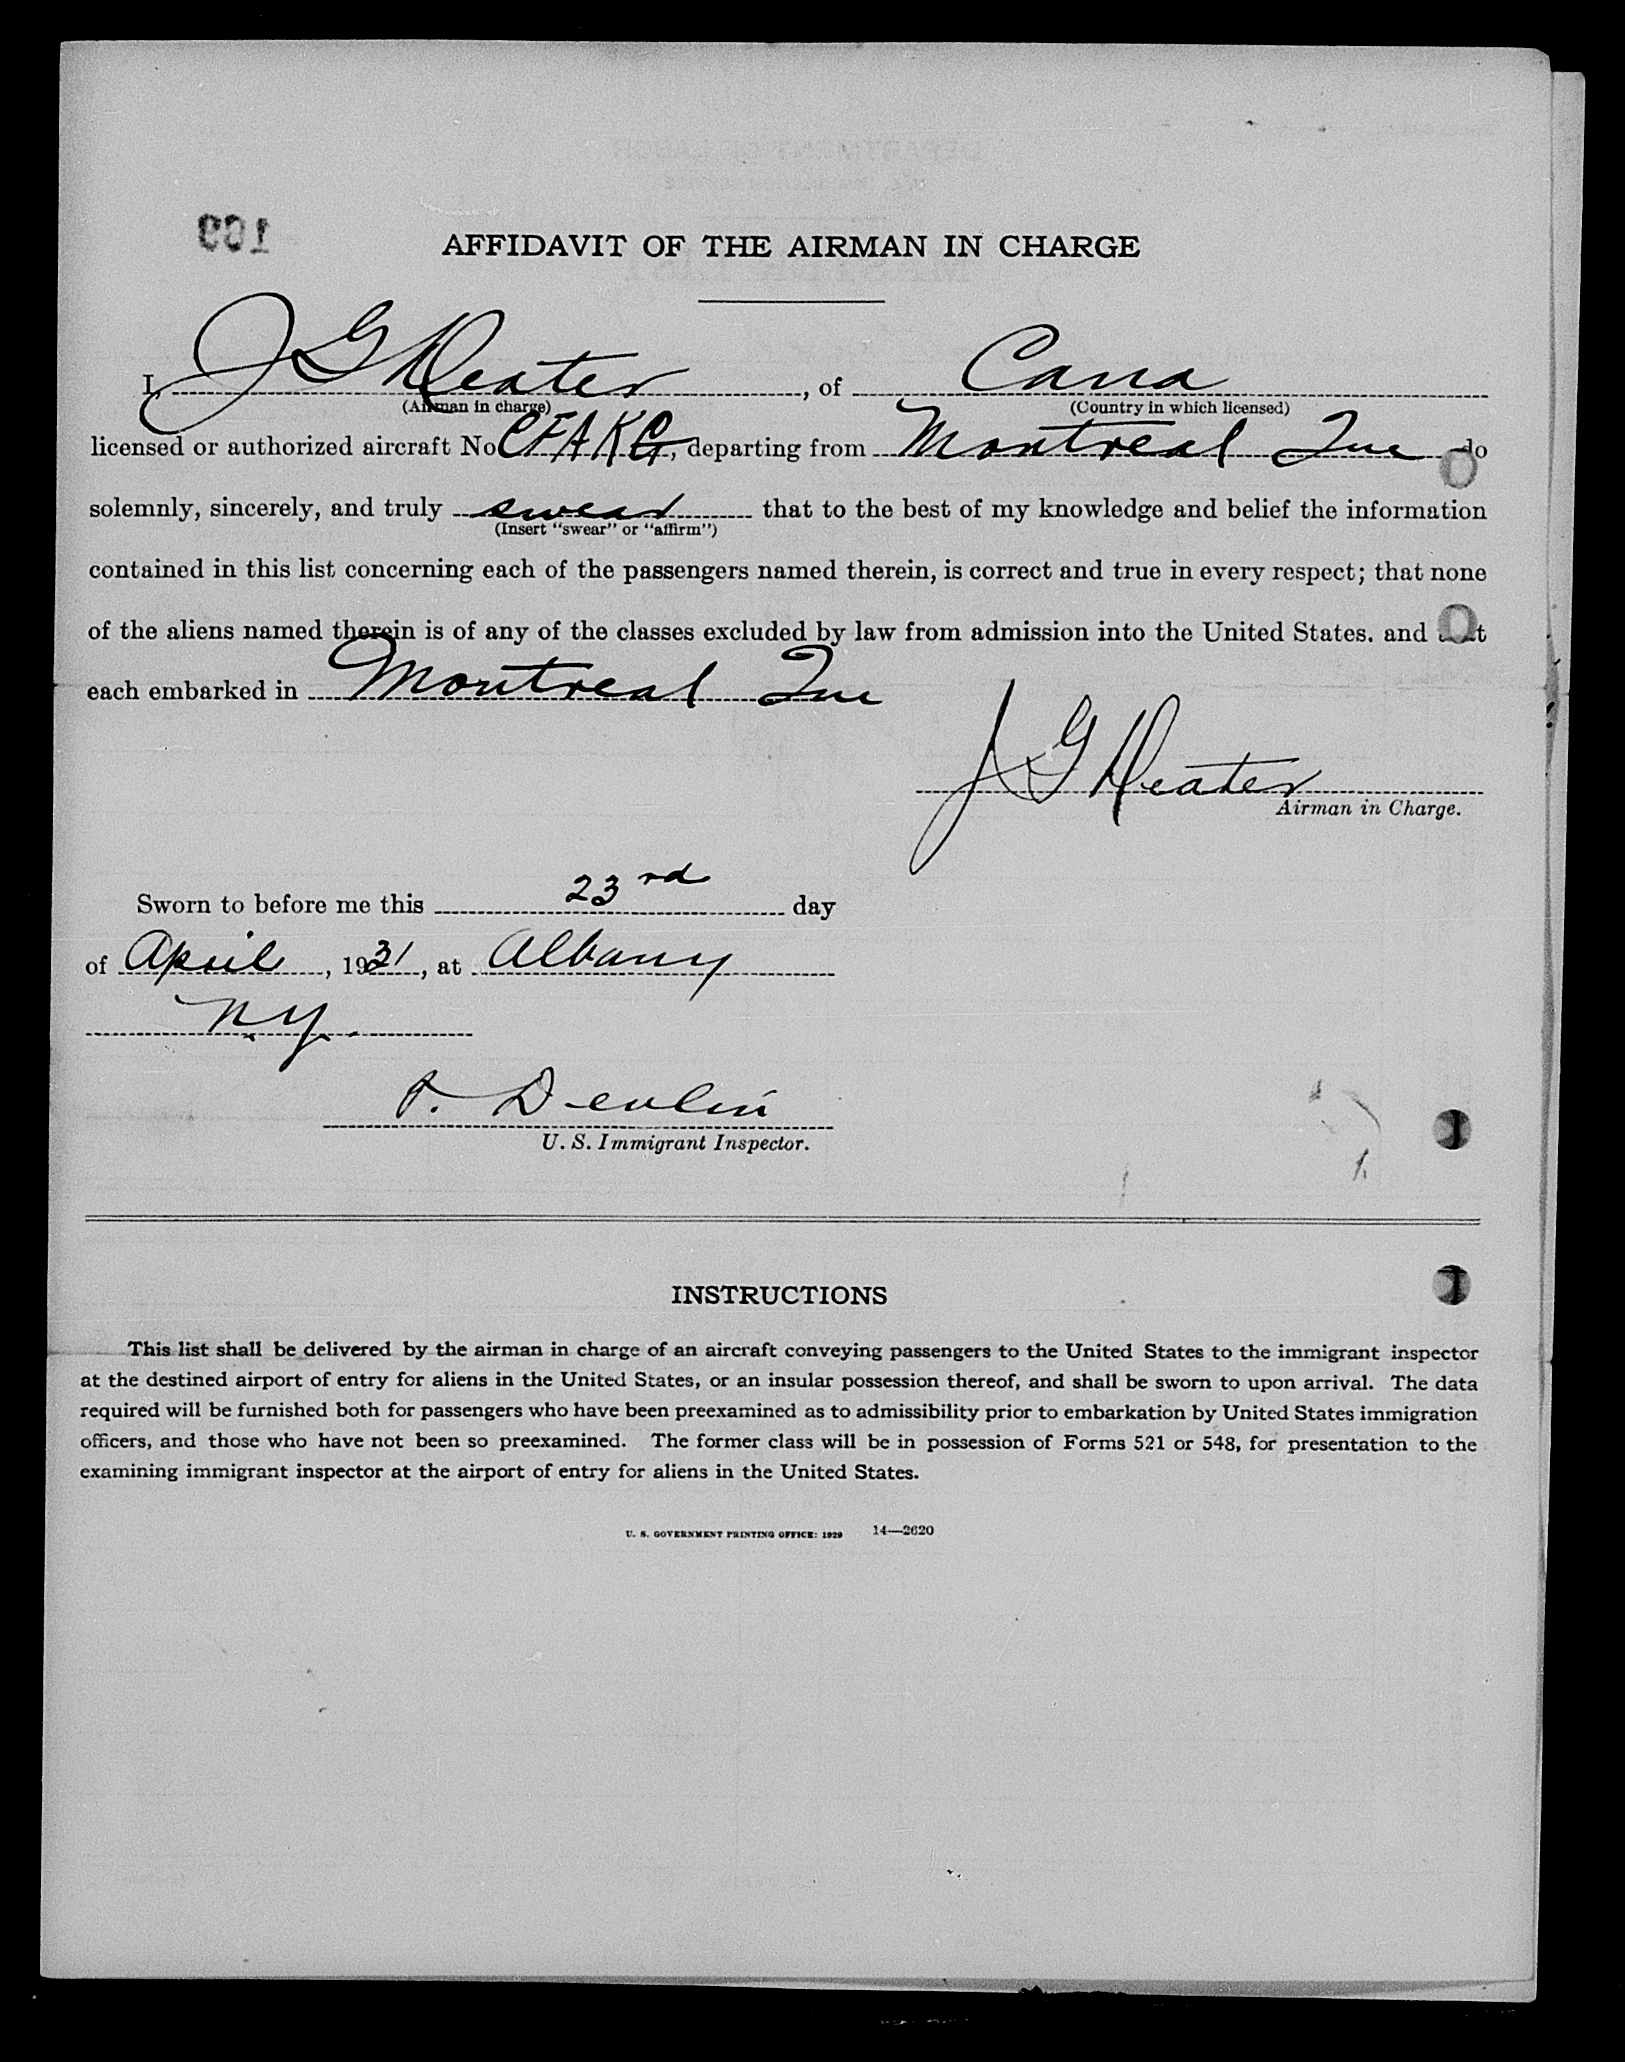 169
AFFIDAVIT OF THE AIRMAN IN CHARGE
I, J G Heater, of Cana
(Airman in charge) (Country in which licensed)
licensed or authorized aircraft No CFAKG, departing from Montreal Que do
solemnly, sincerely, and truly swear that to the best of my knowledge and belief the information
(Insert "swear" or "affirm")
contained in this list concerning each of the passengers named therein, is correct and true in every respect; that none
of the aliens named therein is of any of the classes excluded by law from admission into the United States. and that
each embarked in Montreal Que
J G Heater
Airman in Charge.
Sworn to before me this 23rd day
of April, 1931, at Albany
N.Y.
P. Devlin
U. S. Immigrant Inspector.
INSTRUCTIONS
This list shall be delivered by the airman in charge of an aircraft conveying passengers to the United States to the immigrant inspector
at the destined airport of entry for aliens in the United States, or an insular possession thereof, and shall be sworn to upon arrival. The data
required will be furnished both for passengers who have been preexamined as to admissibility prior to embarkation by United States immigration
officers, and those who have not been so preexamined. The former class will be in possession of Forms 521 or 548, for presentation to the
examining immigrant inspector at the airport of entry for aliens in the United States.
U. S. GOVERNMENT PRINTING OFFICE: 1929 14—2620